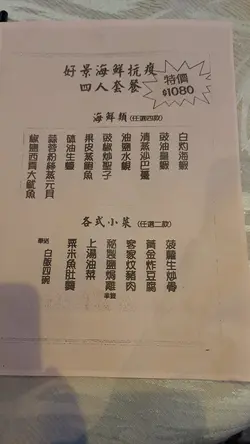 好景海鮮抗疫
四人套餐
特價
$1080
海鮮類(任選四款)
白灼海蝦
豉油皇蝦
清蒸沙巴躉
油鹽水蜆
豉椒炒聖子
果皮蒸鮑魚
砵油生蠔
蒜蓉粉絲蒸元貝
椒鹽西貢大魷魚
各式小菜(任選二款)
菠蘿生炒骨
黃金炸豆腐
客家炆豬肉
秘製鹽焗雞 半隻
上湯油菜
粟米魚肚羹
白飯四碗